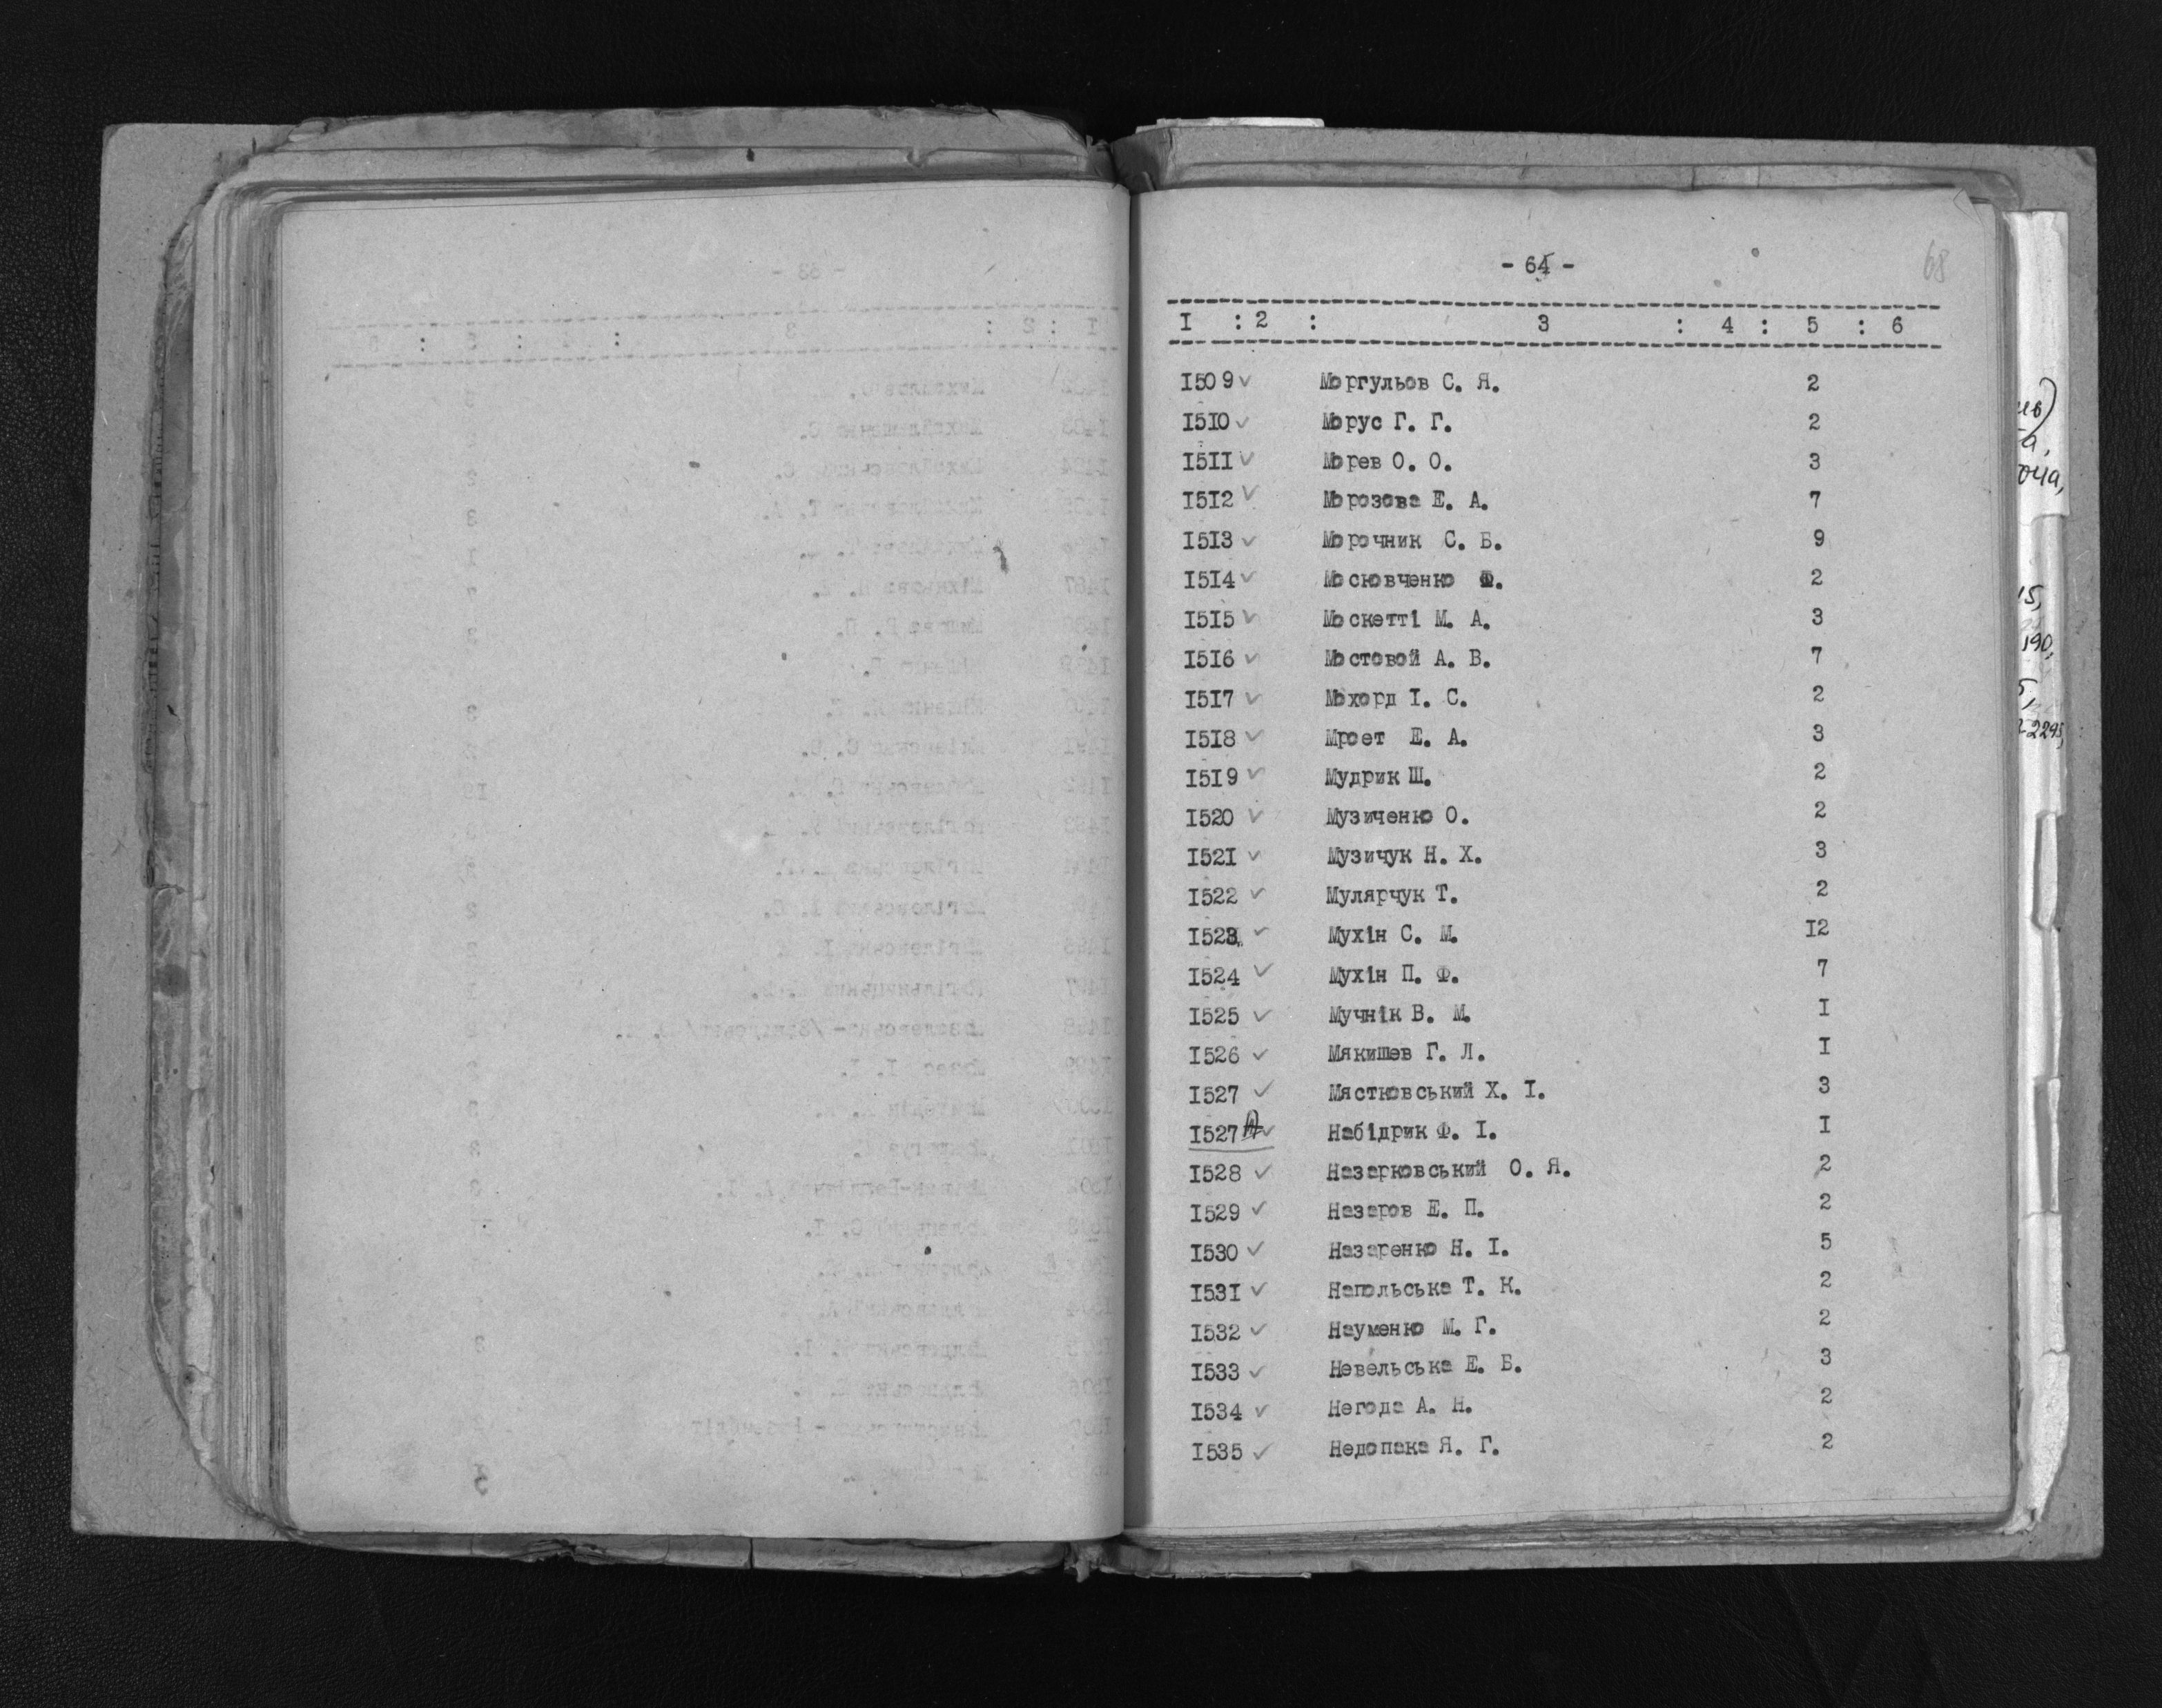 - 64 -
68
I : 2 : 3 : 4 : 5 : 6
I509 ✓ Моргульов С. Я. 2
I5I0 ✓ Морус Г. Г. 2
I5II ✓ Морев О. О. 3
I5I2 ✓ Морозова Е. А. 7
I5I3 ✓ Морочник С. Б. 9
I5I4 ✓ Московченко Ф. 2
I5I5 ✓ Москетті М. А. 3
I5I6 ✓ Мостовой А. В. 7
I5I7 ✓ Мохорд І. С. 2
I5I8 ✓ Мроет Е. А. 3
I5I9 ✓ Мудрик Ш. 2
I520 ✓ Музиченко О. 2
I52I ✓ Музичук Н. Х. 3
I522 ✓ Мулярчук Т. 2
I523 ✓ Мухін С. М. I2
I524 ✓ Мухін П. Ф. 7
I525 ✓ Мучнік В. М. I
I526 ✓ Мякишев Г. Л. I
I527 ✓ Мястковський Х. І. 3
I527 А ✓ Набідрик Ф. І. I
I528 ✓ Назарковський О. Я. 2
I529 ✓ Назаров Е. П. 2
I530 ✓ Назаренко Н. І. 5
I53I ✓ Напольська Т. К. 2
I532 ✓ Науменко М. Г. 2
I533 ✓ Невельська Е. Б. 3
I534 ✓ Негода А. Н. 2
I535 ✓ Недопака Я. Г. 2